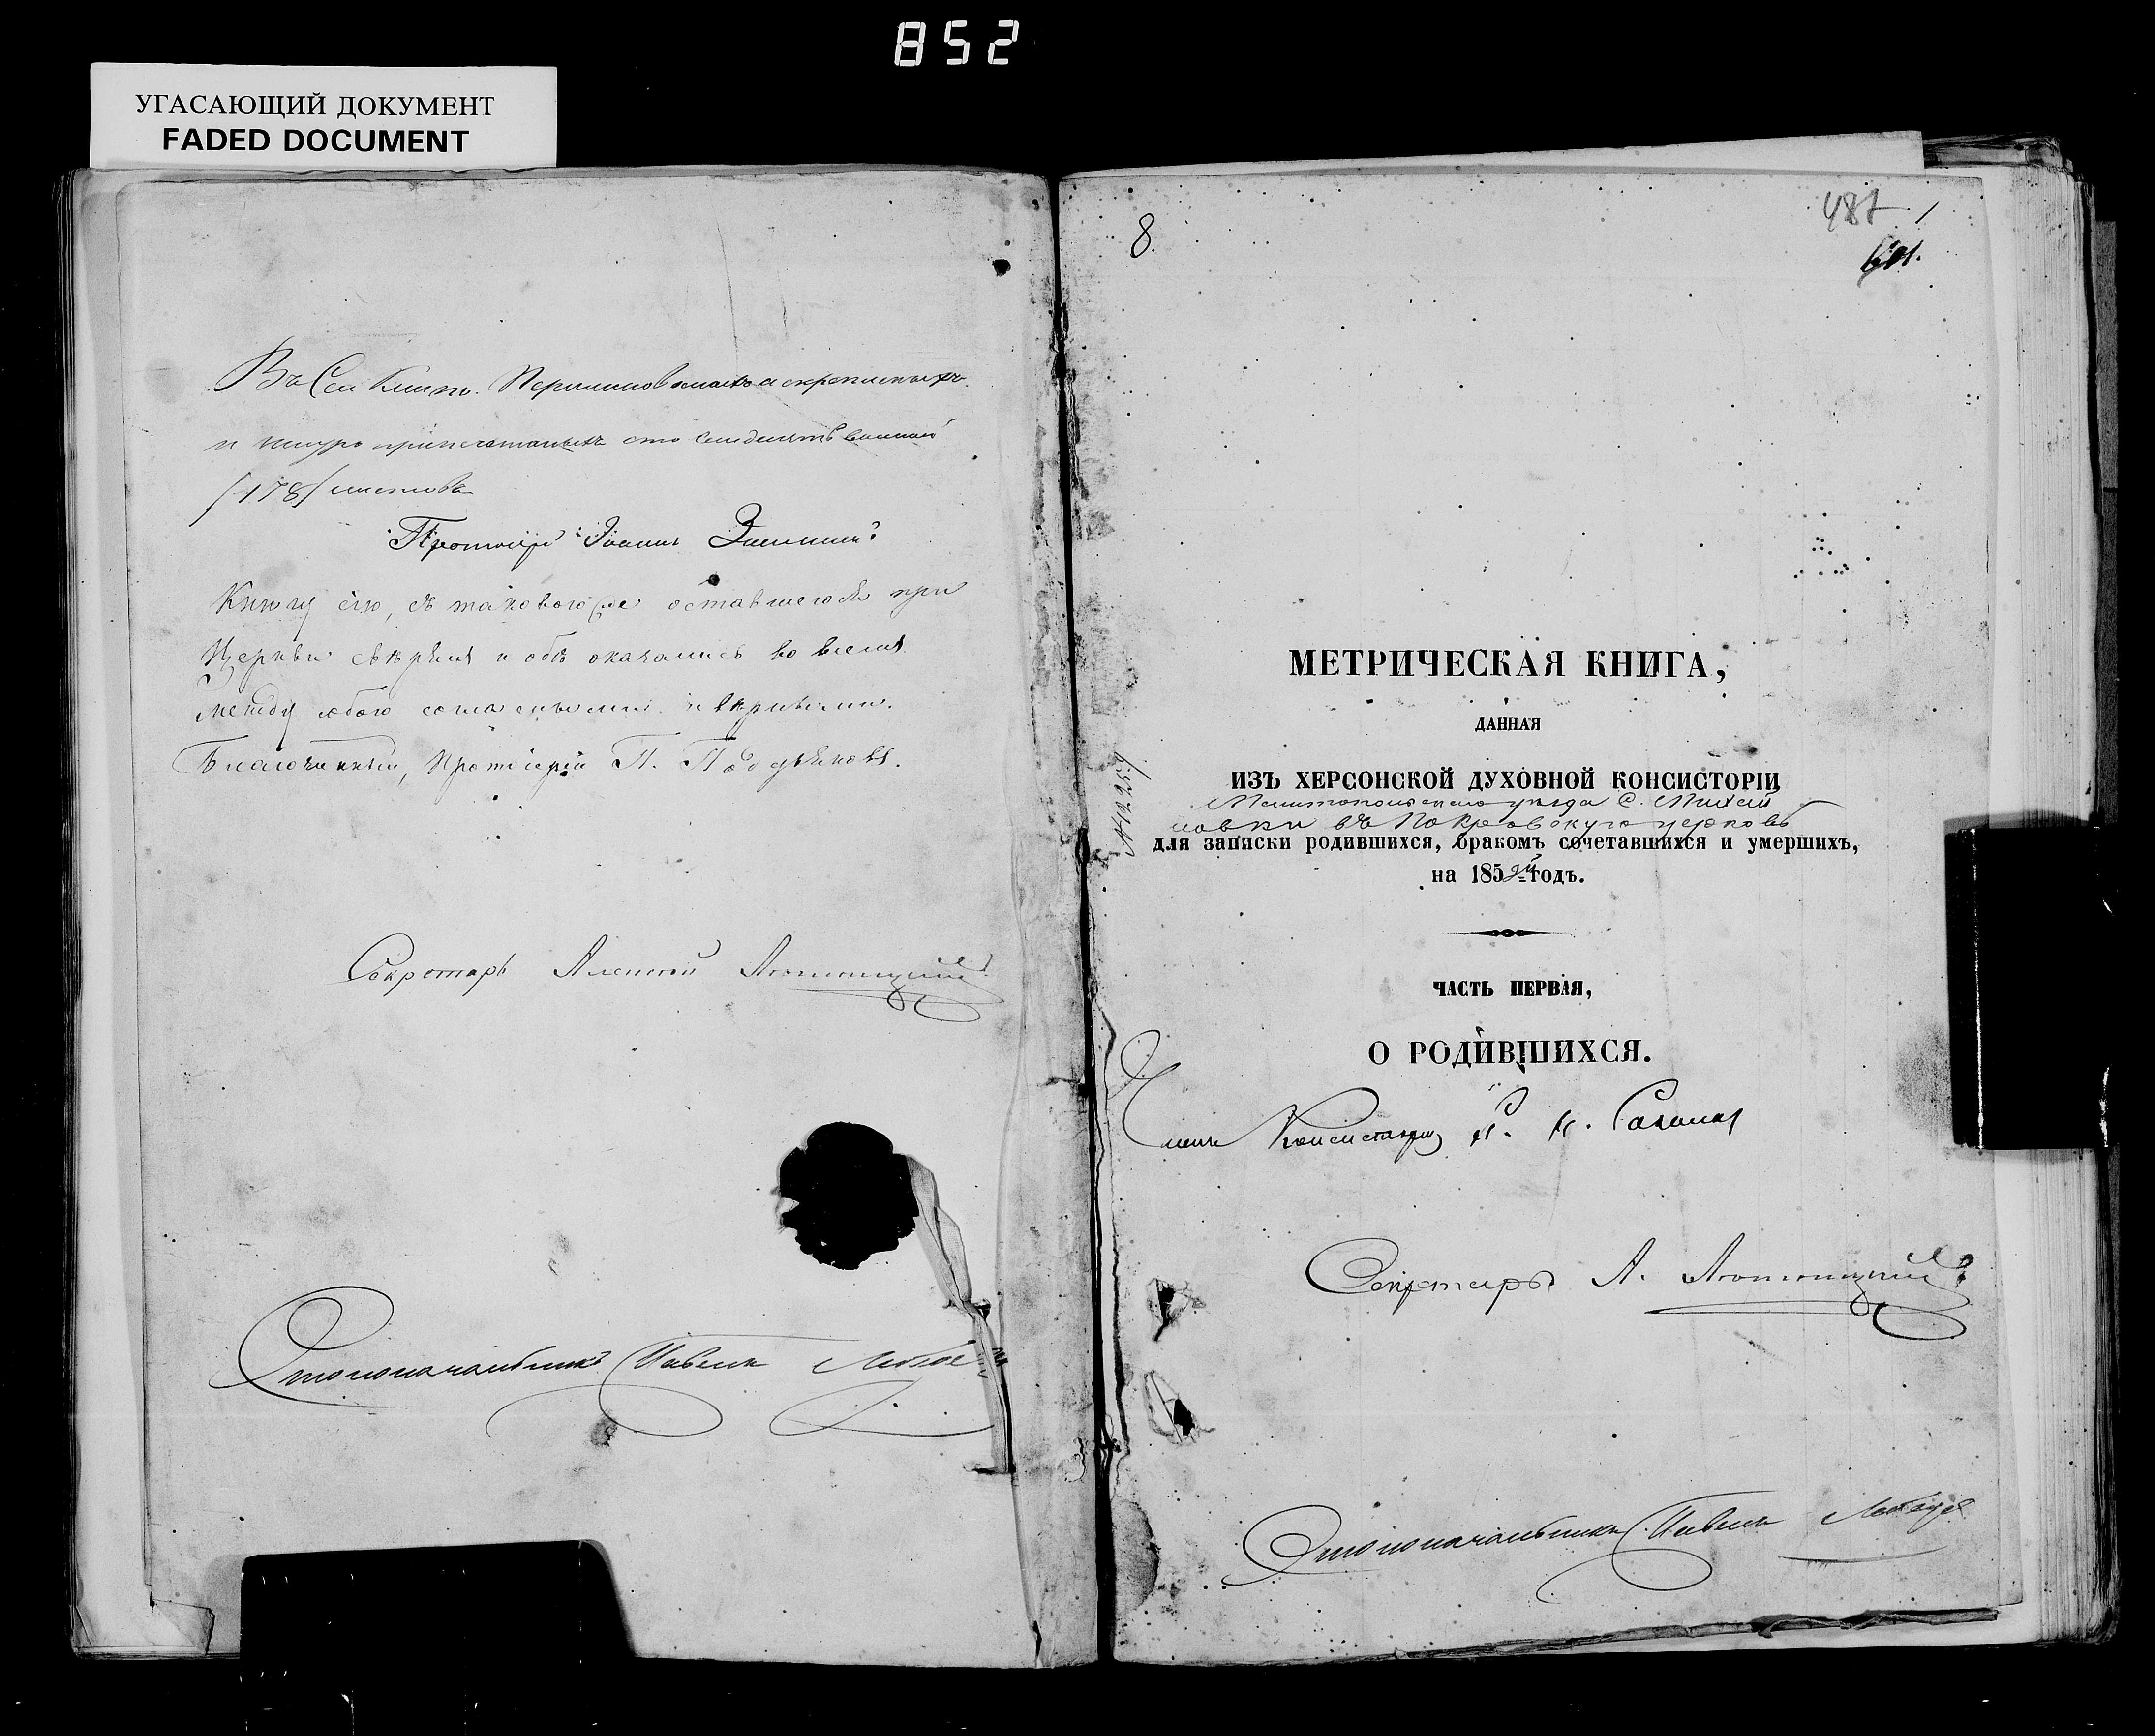 852
УГАСАЮЩИЙ ДОКУМЕНТ
FADED DOCUMENT
Въ Сей Книге
и шнуро припечатаныхъ сто семдесятъ восемь
/178/ листовъ
Протоіерей Іоаннъ
Книгу сію, съ таковою же оставшеюся при
Церкви свѣрялъ и обѣ оказались во всемъ
между собою согласными и вѣрными.
Благочинный, Протоіерей П. Поддубновъ.
Секретарь Алексей
Столоначальникъ Павелъ
8.
487 1
601.
МЕТРИЧЕСКАЯ КНИГА,
ДАННАЯ
ИЗЪ ХЕРСОНСКОЙ ДУХОВНОЙ КОНСИСТОРІИ
Мелитопольскаго уѣзда С. Михай
ловки въ Покровскую церковь
для записки родившихся, бракомъ сочетавшихся и умершихъ,
на 185 й годъ.
ЧАСТЬ ПЕРВАЯ,
О РОДИВШИХСЯ.
Членъ Консисторіи
Секретарь А.
Столоначальникъ Павелъ